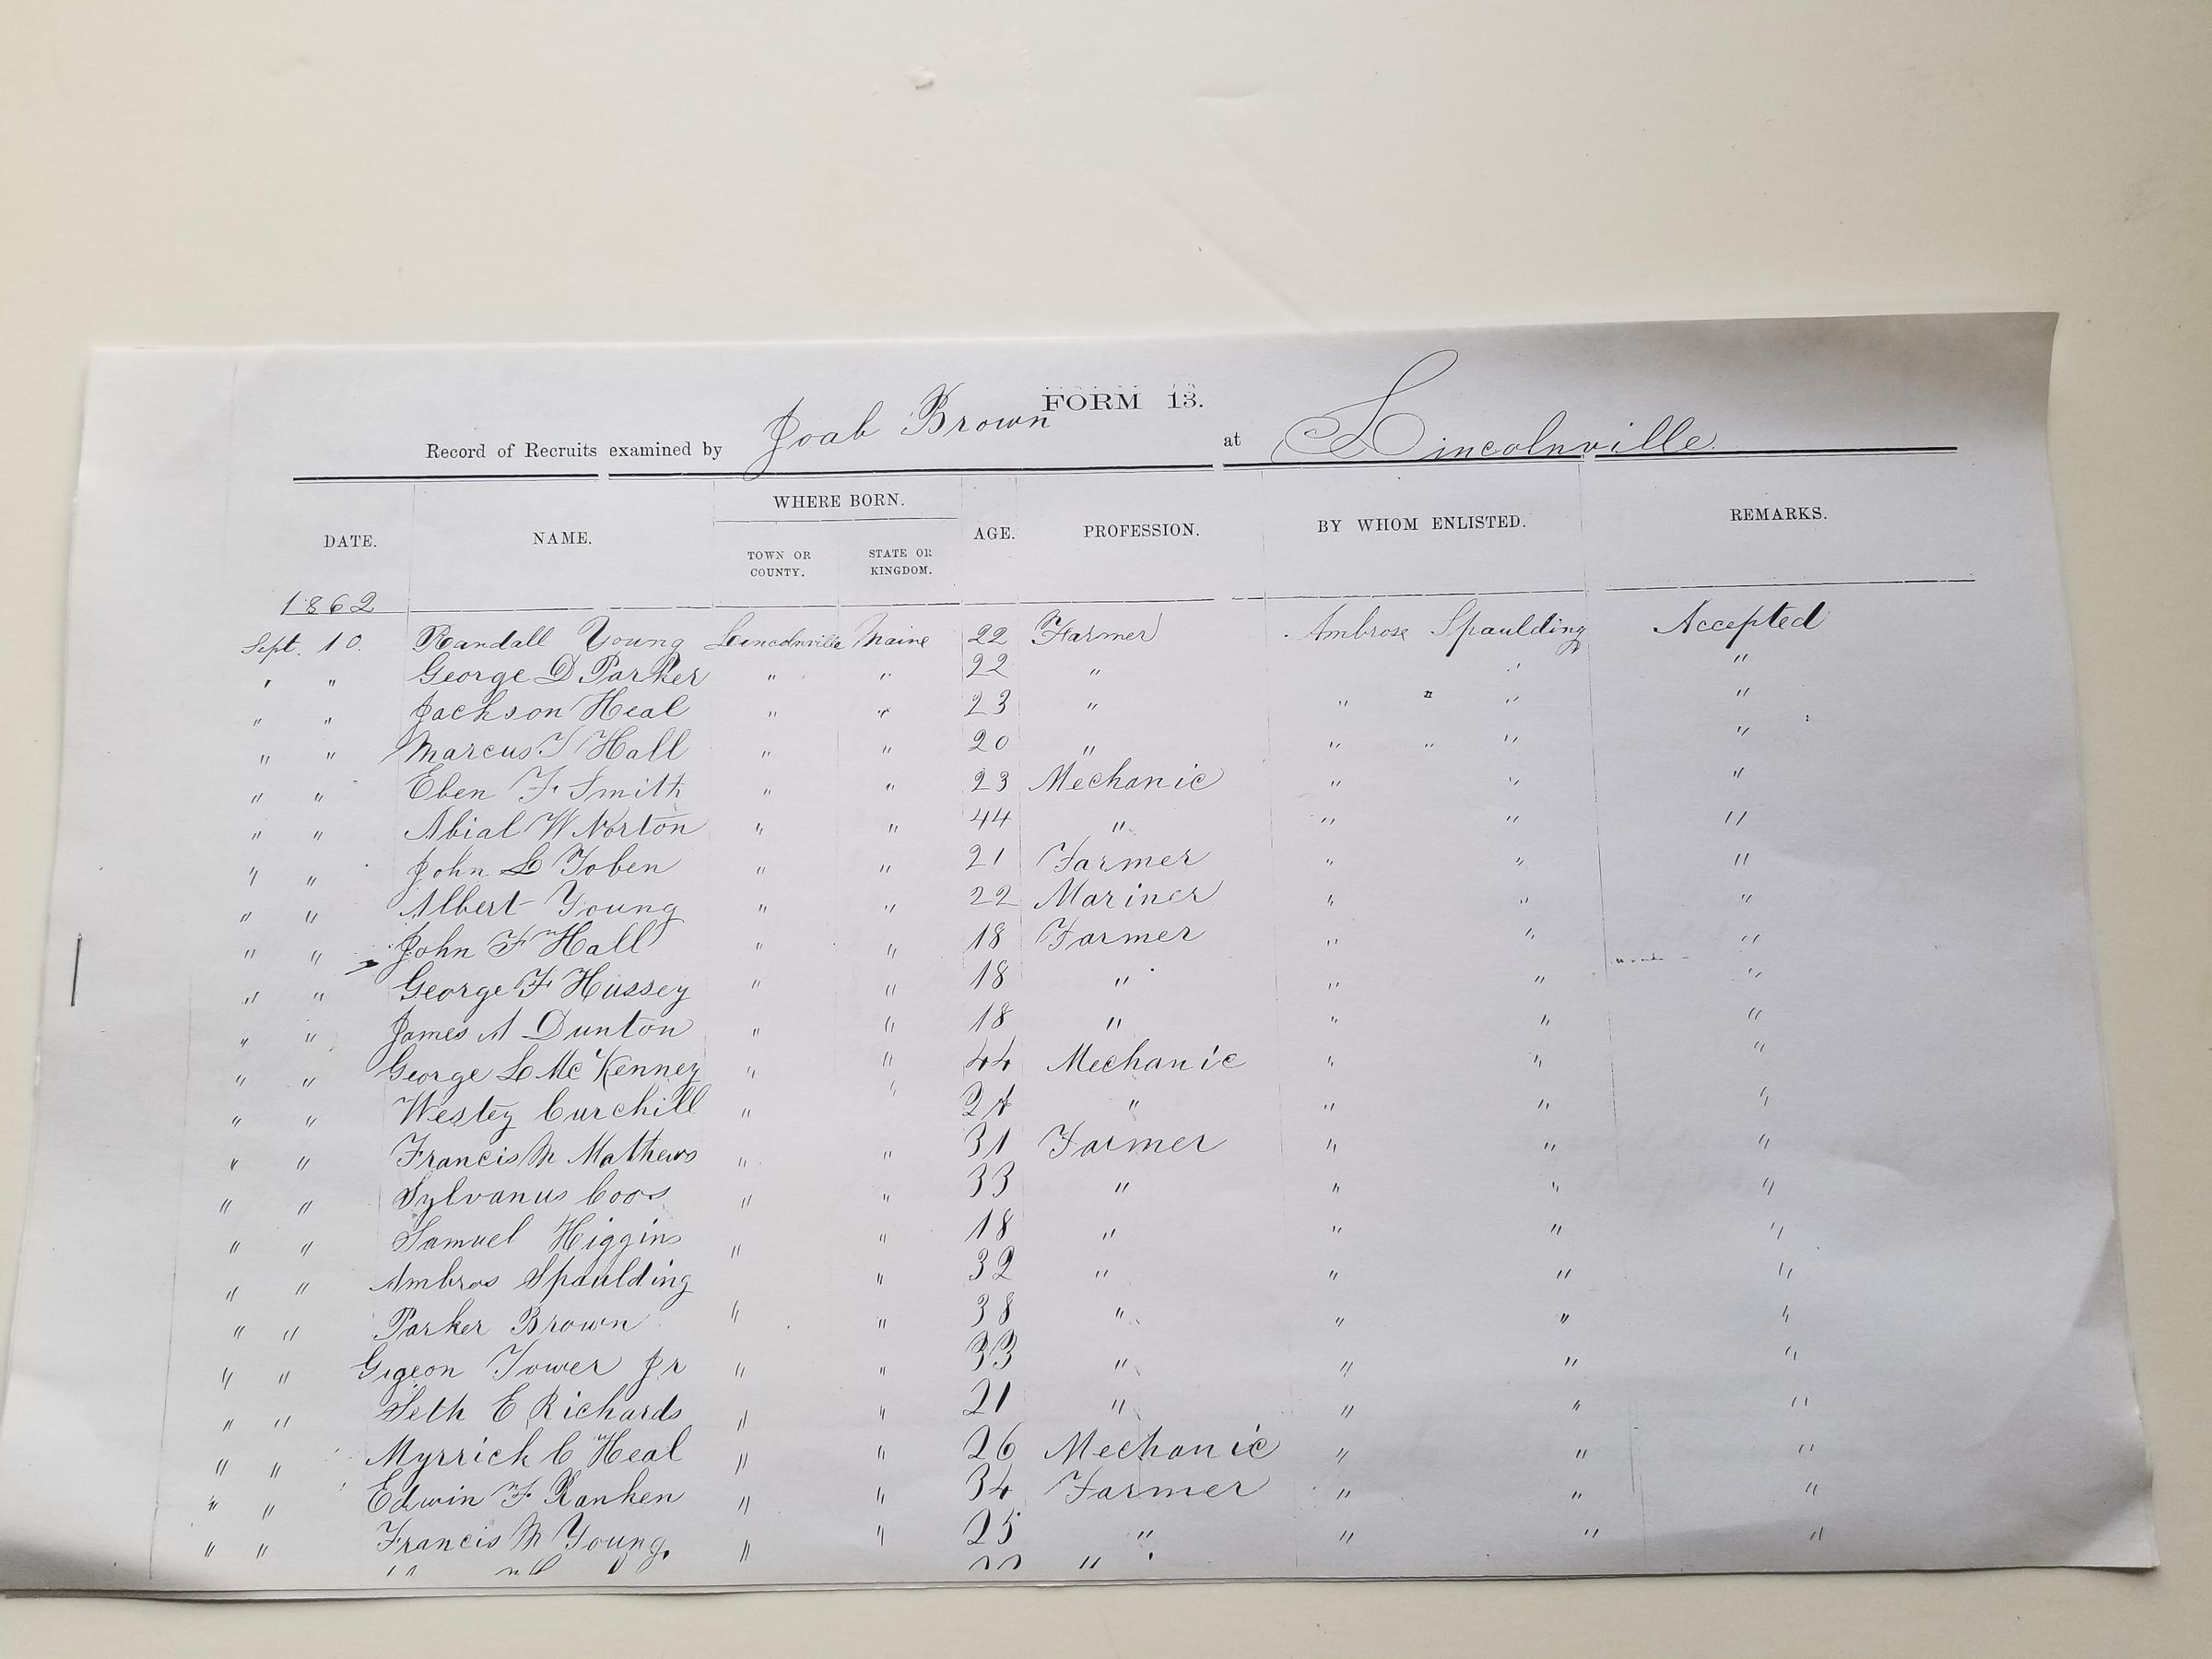 FORM 13.
Record of Recruits examined by Joab Brown at Lincolnville.
DATE. NAME. WHERE BORN. AGE. PROFESSION. BY WHOM ENLISTED. REMARKS.
TOWN OR COUNTY. STATE OR KINGDOM.
1862
Sept. 10. Randall Young Lincolnville Maine 22 Farmer Ambrose Spaulding Accepted
" " George D Parker " " 22 " " "
" " Jackson Heal " " 23 " " " " "
" " Marcus T Hall " " 20 " " " " "
" " Eben F Smith " " 23 Mechanic " " "
" " Abial W Norton " " 44 " " " "
" " John L Toben " " 21 Farmer " " "
" " Albert Young " " 22 Mariner " " "
" " John F Hall " " 18 Farmer " " "
" " George F Hussey " " 18 " " " "
" " James A Dunton " " 18 " " " "
" " George L McKenney " " 44 Mechanic " " "
" " Westey Curchill " " " " " "
" " Francis M Mathews " " 31 Farmer " " "
" " Sylvanus Coos " " 33 " " " "
" " Samuel Higgins " " 18 " " " "
" " Ambros Spaulding " 32 " " " "
" " Parker Brown " " 38 " " " "
" " Gigeon Tower Jr " " 33 " " " "
" " Seth E Richards " " 21 " " " "
" " Myrrick C Heal " " 26 Mechanic " " "
" " Edwin F Ranken " " 34 Farmer " " "
" " Francis M Young, " " 25 " " " "